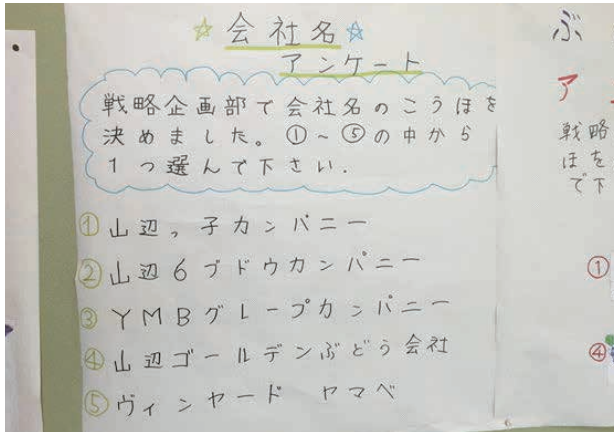 ☆会社名☆
アンケート
戦略企画部で会社名のこうほを
決めました。①~⑤の中から
1つ選んで下さい.
①山辺っ子カンパニー
②山辺6ブドウカンパニー
③YMBグレープカンパニー
④山辺ゴールデンぶどう会社
⑤ヴィンヤード ヤマベ
ぶ
ア
戦略
ほを
で下
①
④